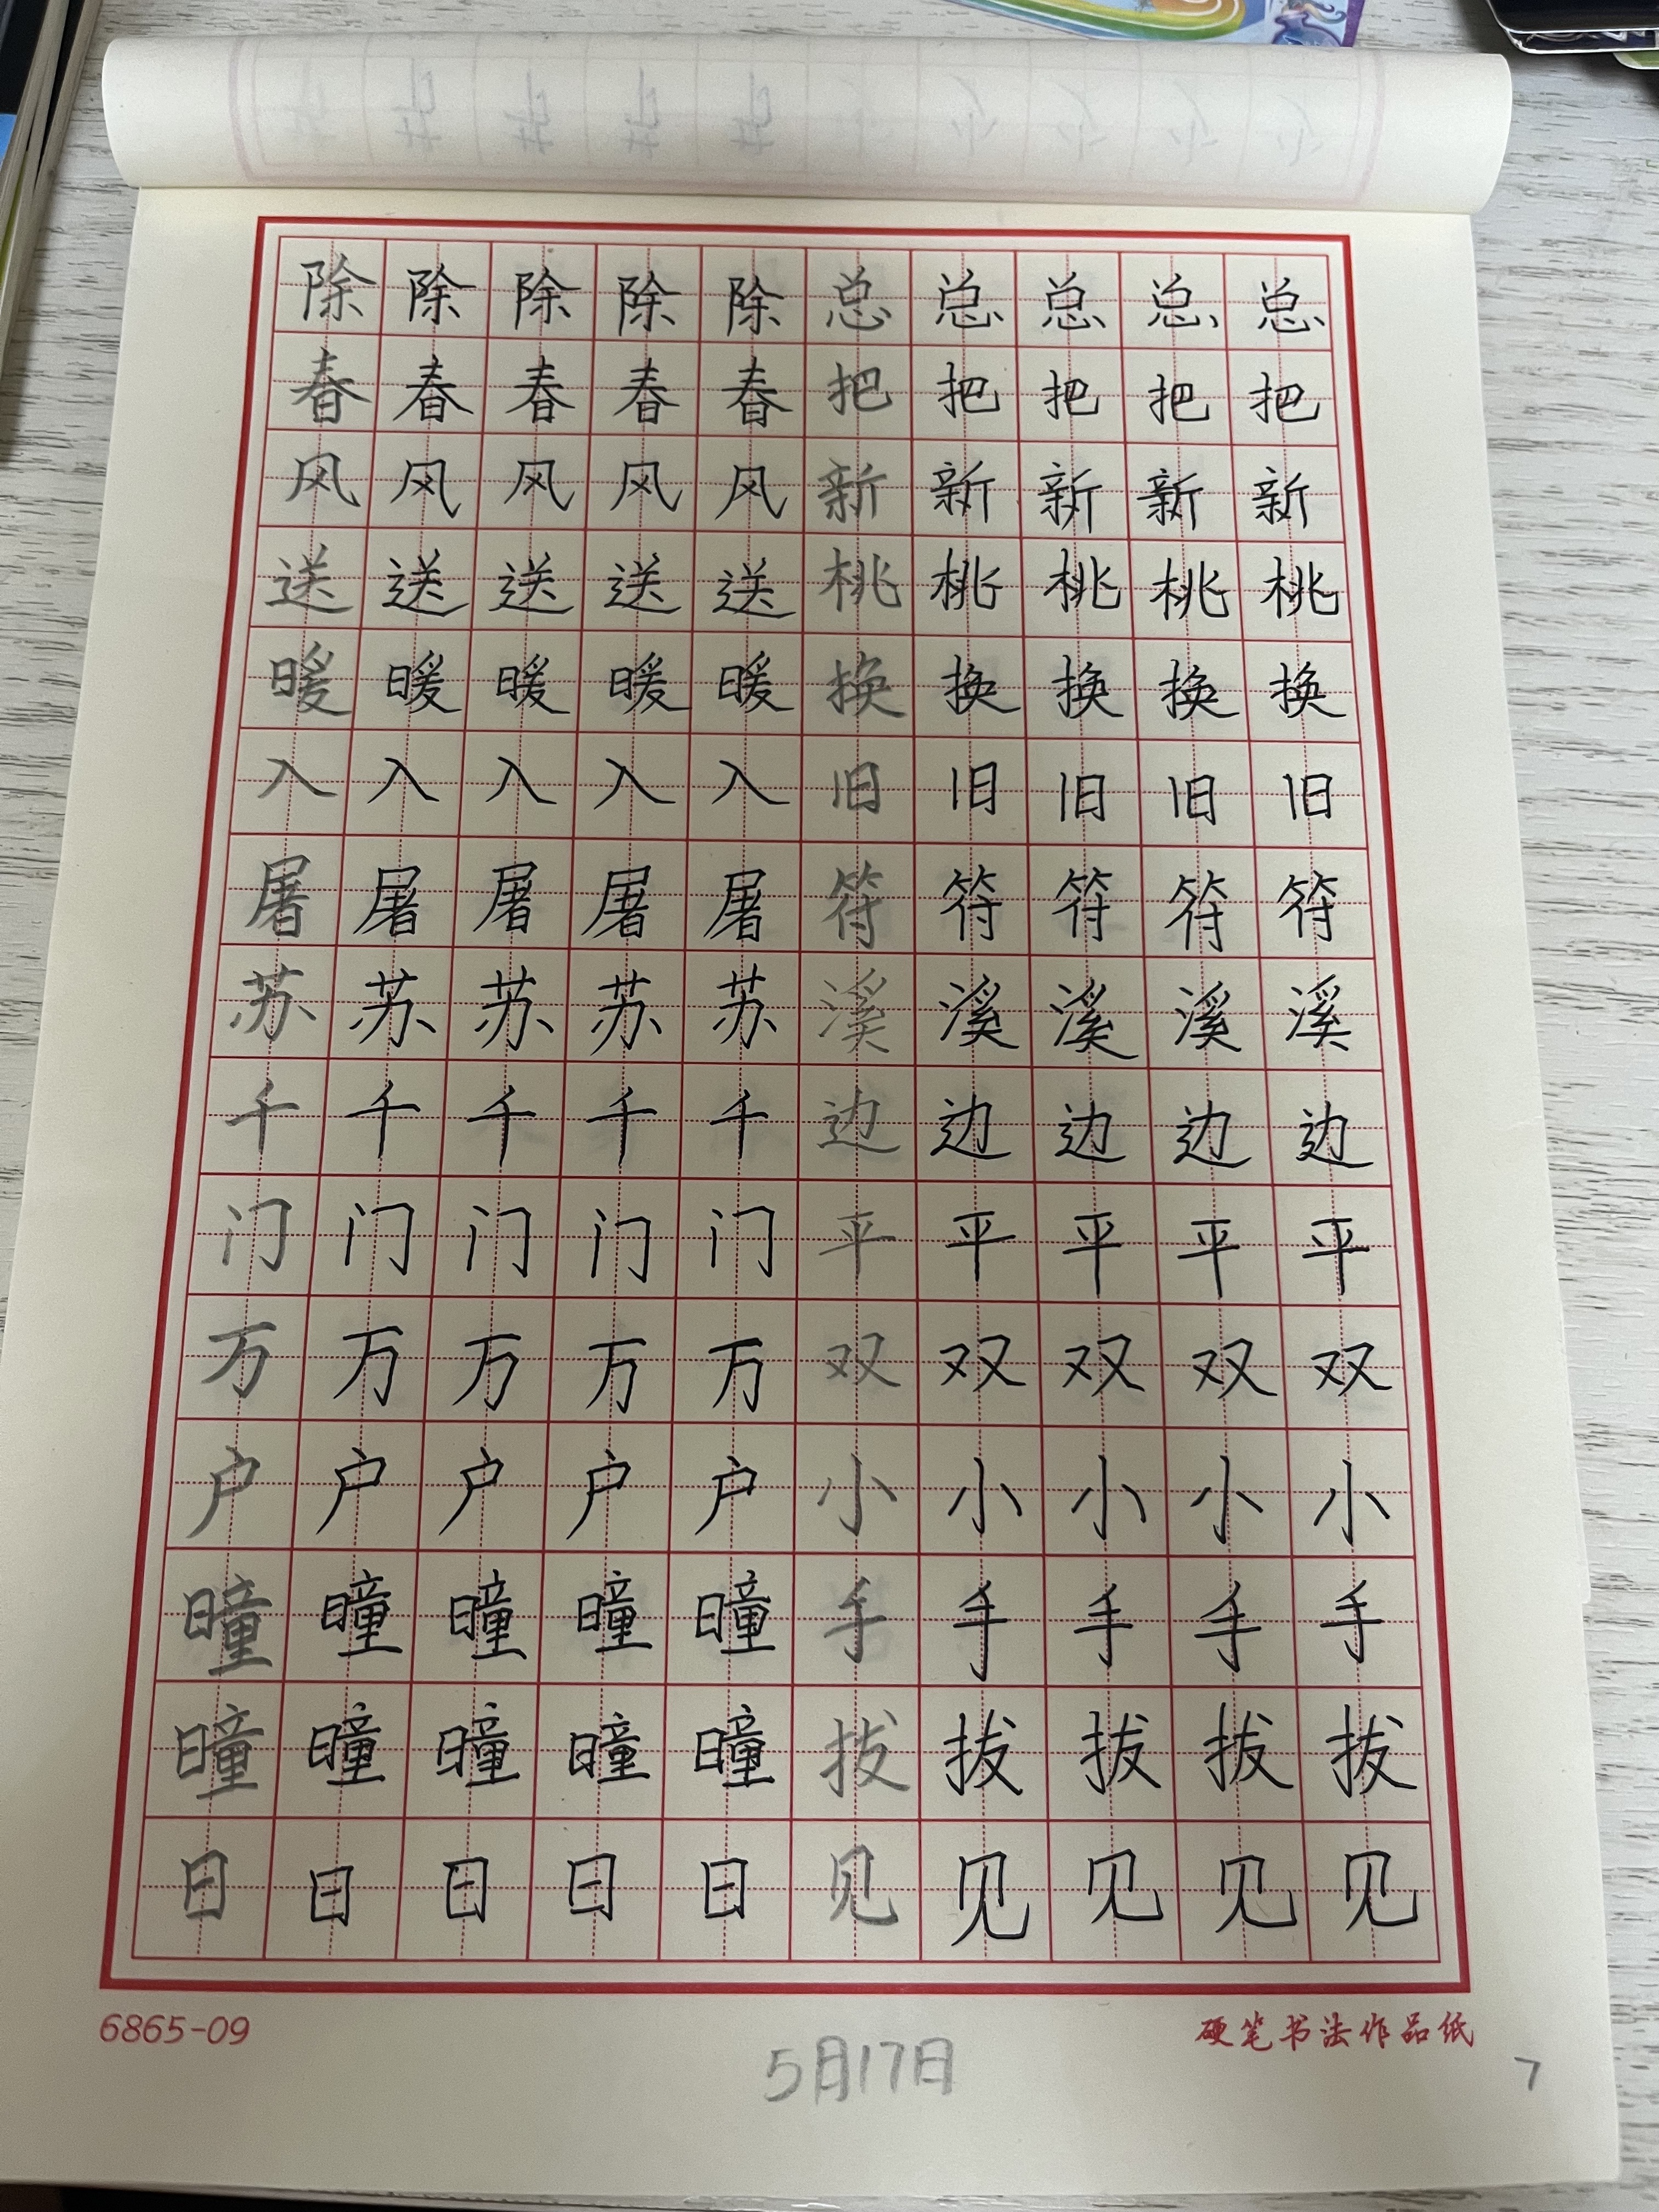 除除除除除总总总总总
春春春春春把把把把把
风风风风风新新新新新
送送送送送桃桃桃桃桃
暖暖暖暖暖换换换换换
入入入入入旧旧旧旧旧
屠屠屠屠屠符符符符符
苏苏苏苏苏溪溪溪溪溪
千千千千千边边边边边
门门门门门平平平平平
万万万万万双双双双双
户户户户户小小小小小
曈曈曈曈曈手手手手手
曈曈曈曈曈拔拔拔拔拔
日日日日日见见见见见
6865-09
硬笔书法作品纸
5月17日
7